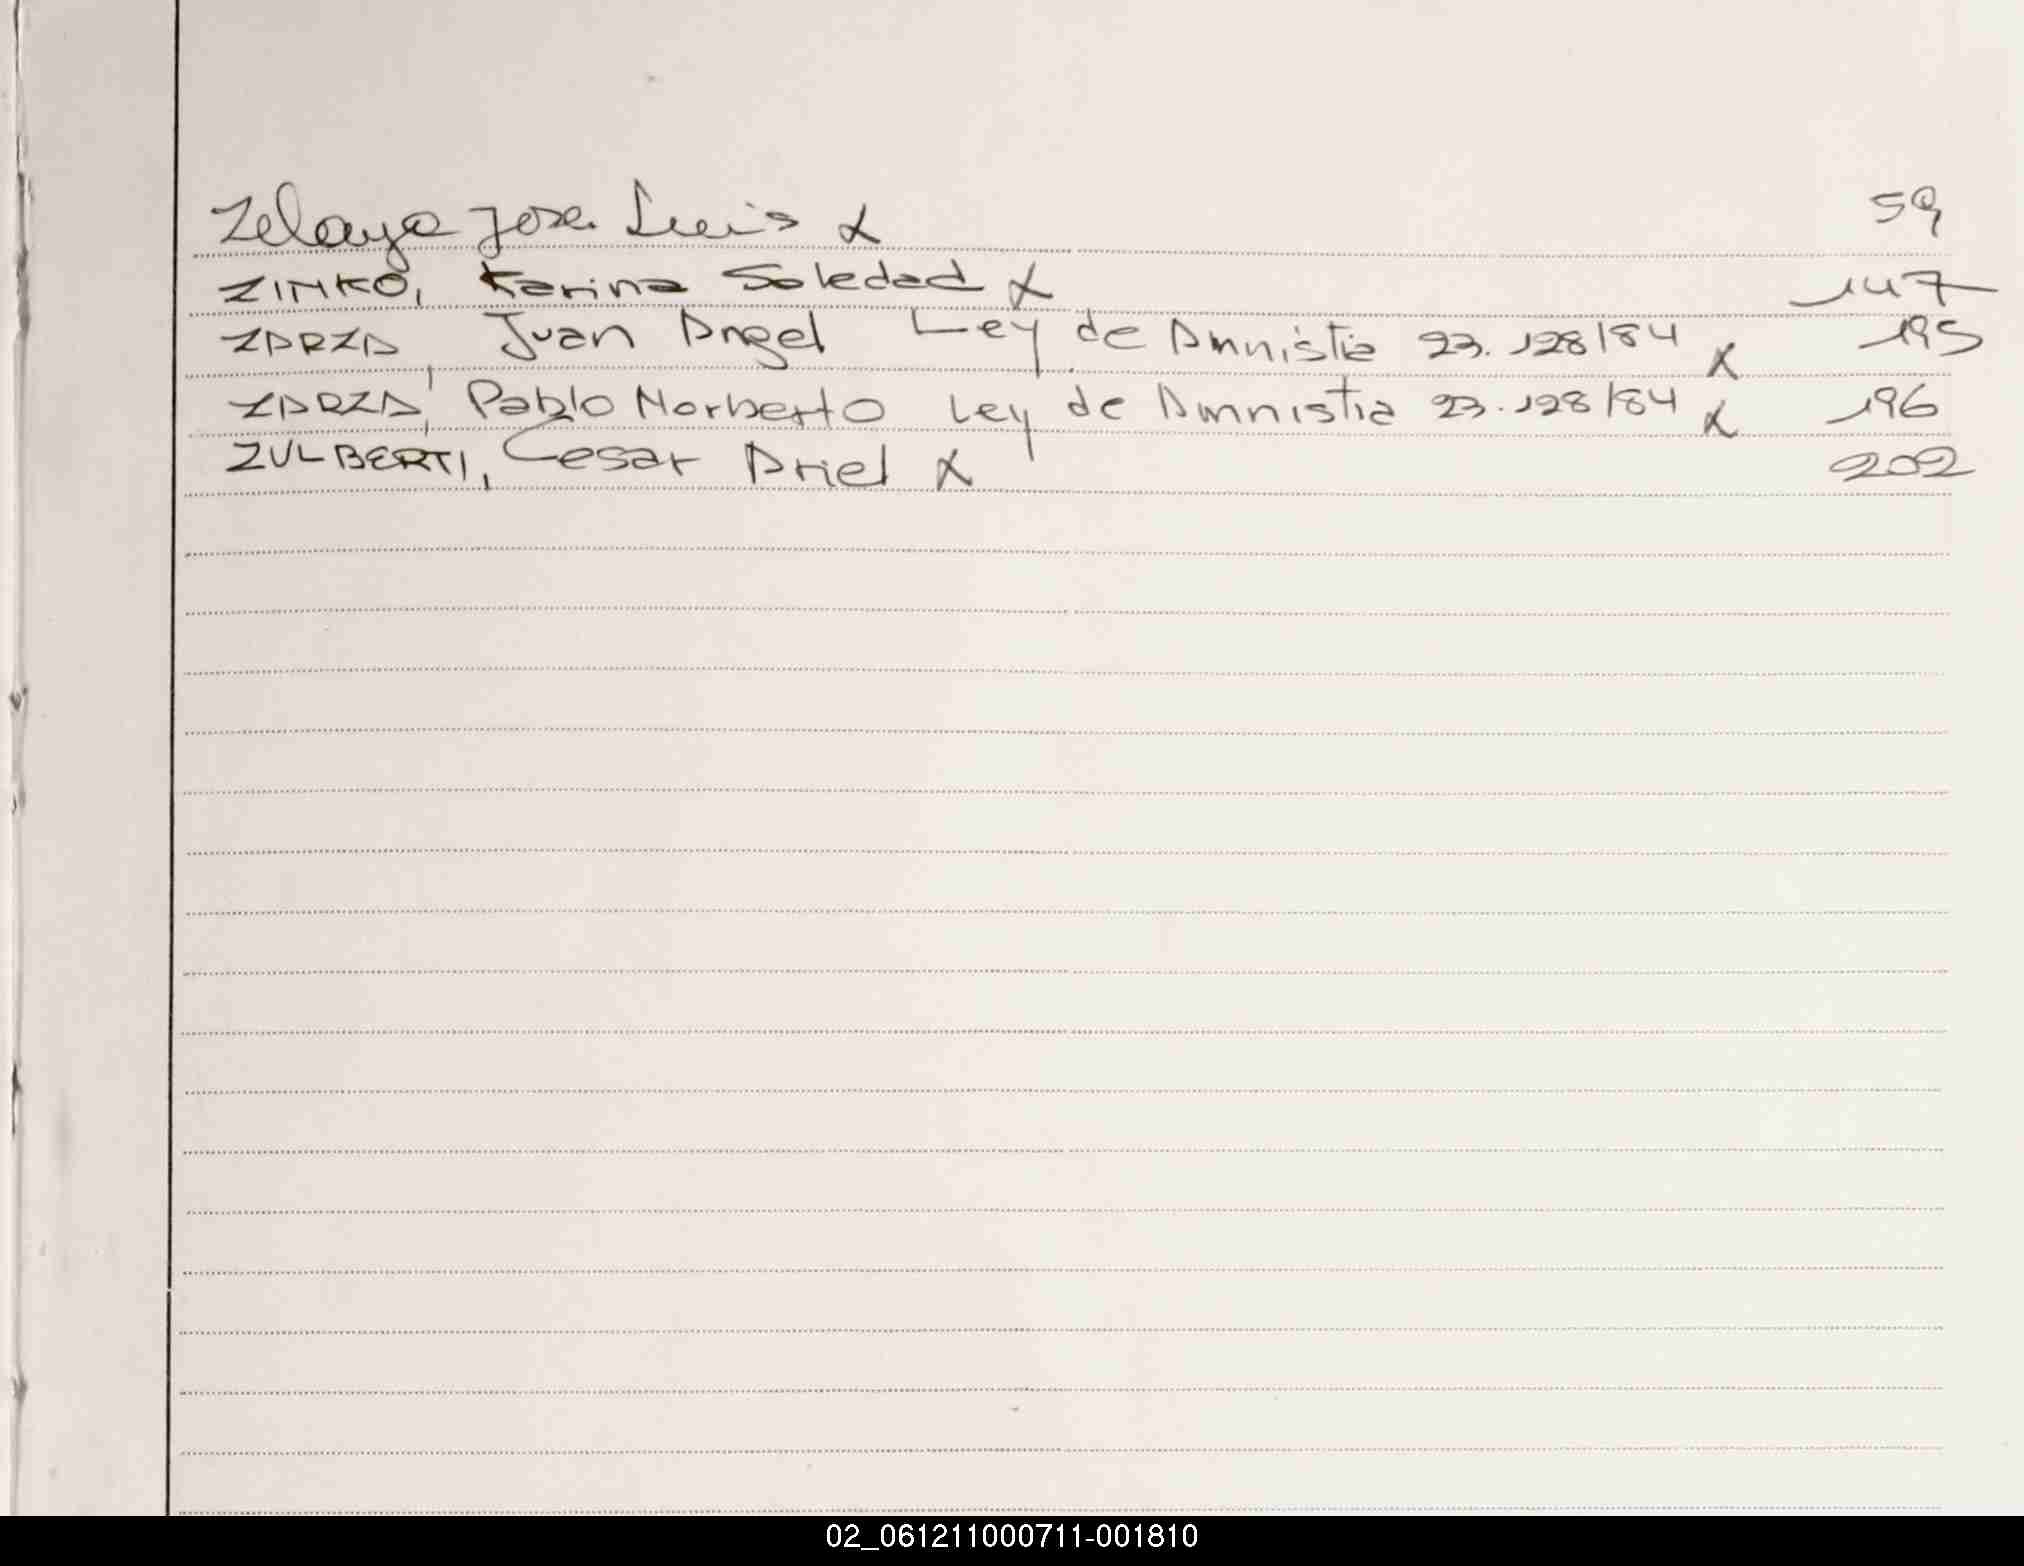 Zelaya Jose Luis X 59
ZINKO, Karina Soledad X 147
ZARZA, Juan Angel Ley de Amnistia 23.128/84 X 195
ZARZA, Pablo Norberto Ley de Amnistia 23.128/84 X 196
ZULBERTI, Cesar Ariel X 202
02_061211000711-001810